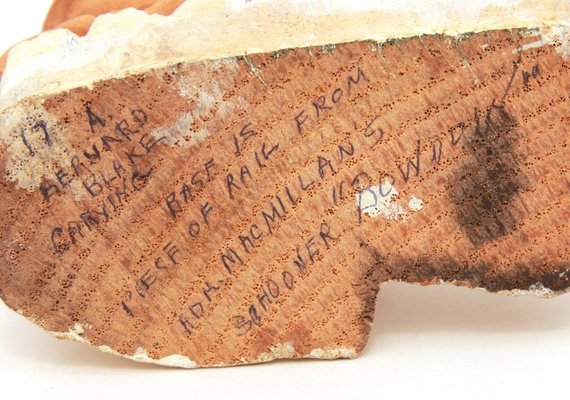 17 A
BERNARD
BLAKE
CARVING
BASE IS
PIECE OF RAIL FROM
ADM. MACMILLAN'S
SCHOONER "BOWDOIN